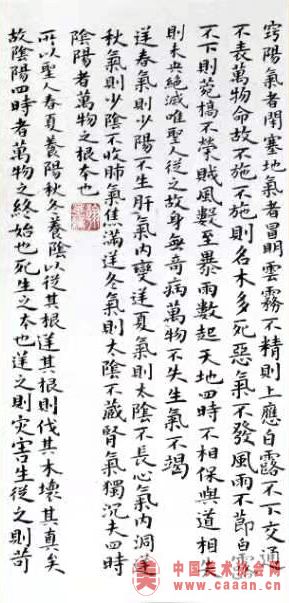 竅陽氣者閉塞地氣者冒明雲霧不精則上應白露不下交通
不表萬物命故不施不施則名木多死惡氣不發風雨不節白露
不下則菀槁不榮賊風數至暴雨數起天地四時不相保與道相失
則未央絕滅唯聖人從之故身無奇病萬物不失生氣不竭
逆春氣則少陽不生肝氣內變逆夏氣則太陰不長心氣內洞逆
秋氣則少陰不收肺氣焦滿逆冬氣則太陰不藏腎氣獨沉夫四時
陰陽者萬物之根本也
所以聖人春夏養陽秋冬養陰以從其根逆其根則伐其本壞其真矣
故陰陽四時者萬物之終始也死生之本也逆之則灾害生從之則苛
中国美术协会网
www.caaan.cn